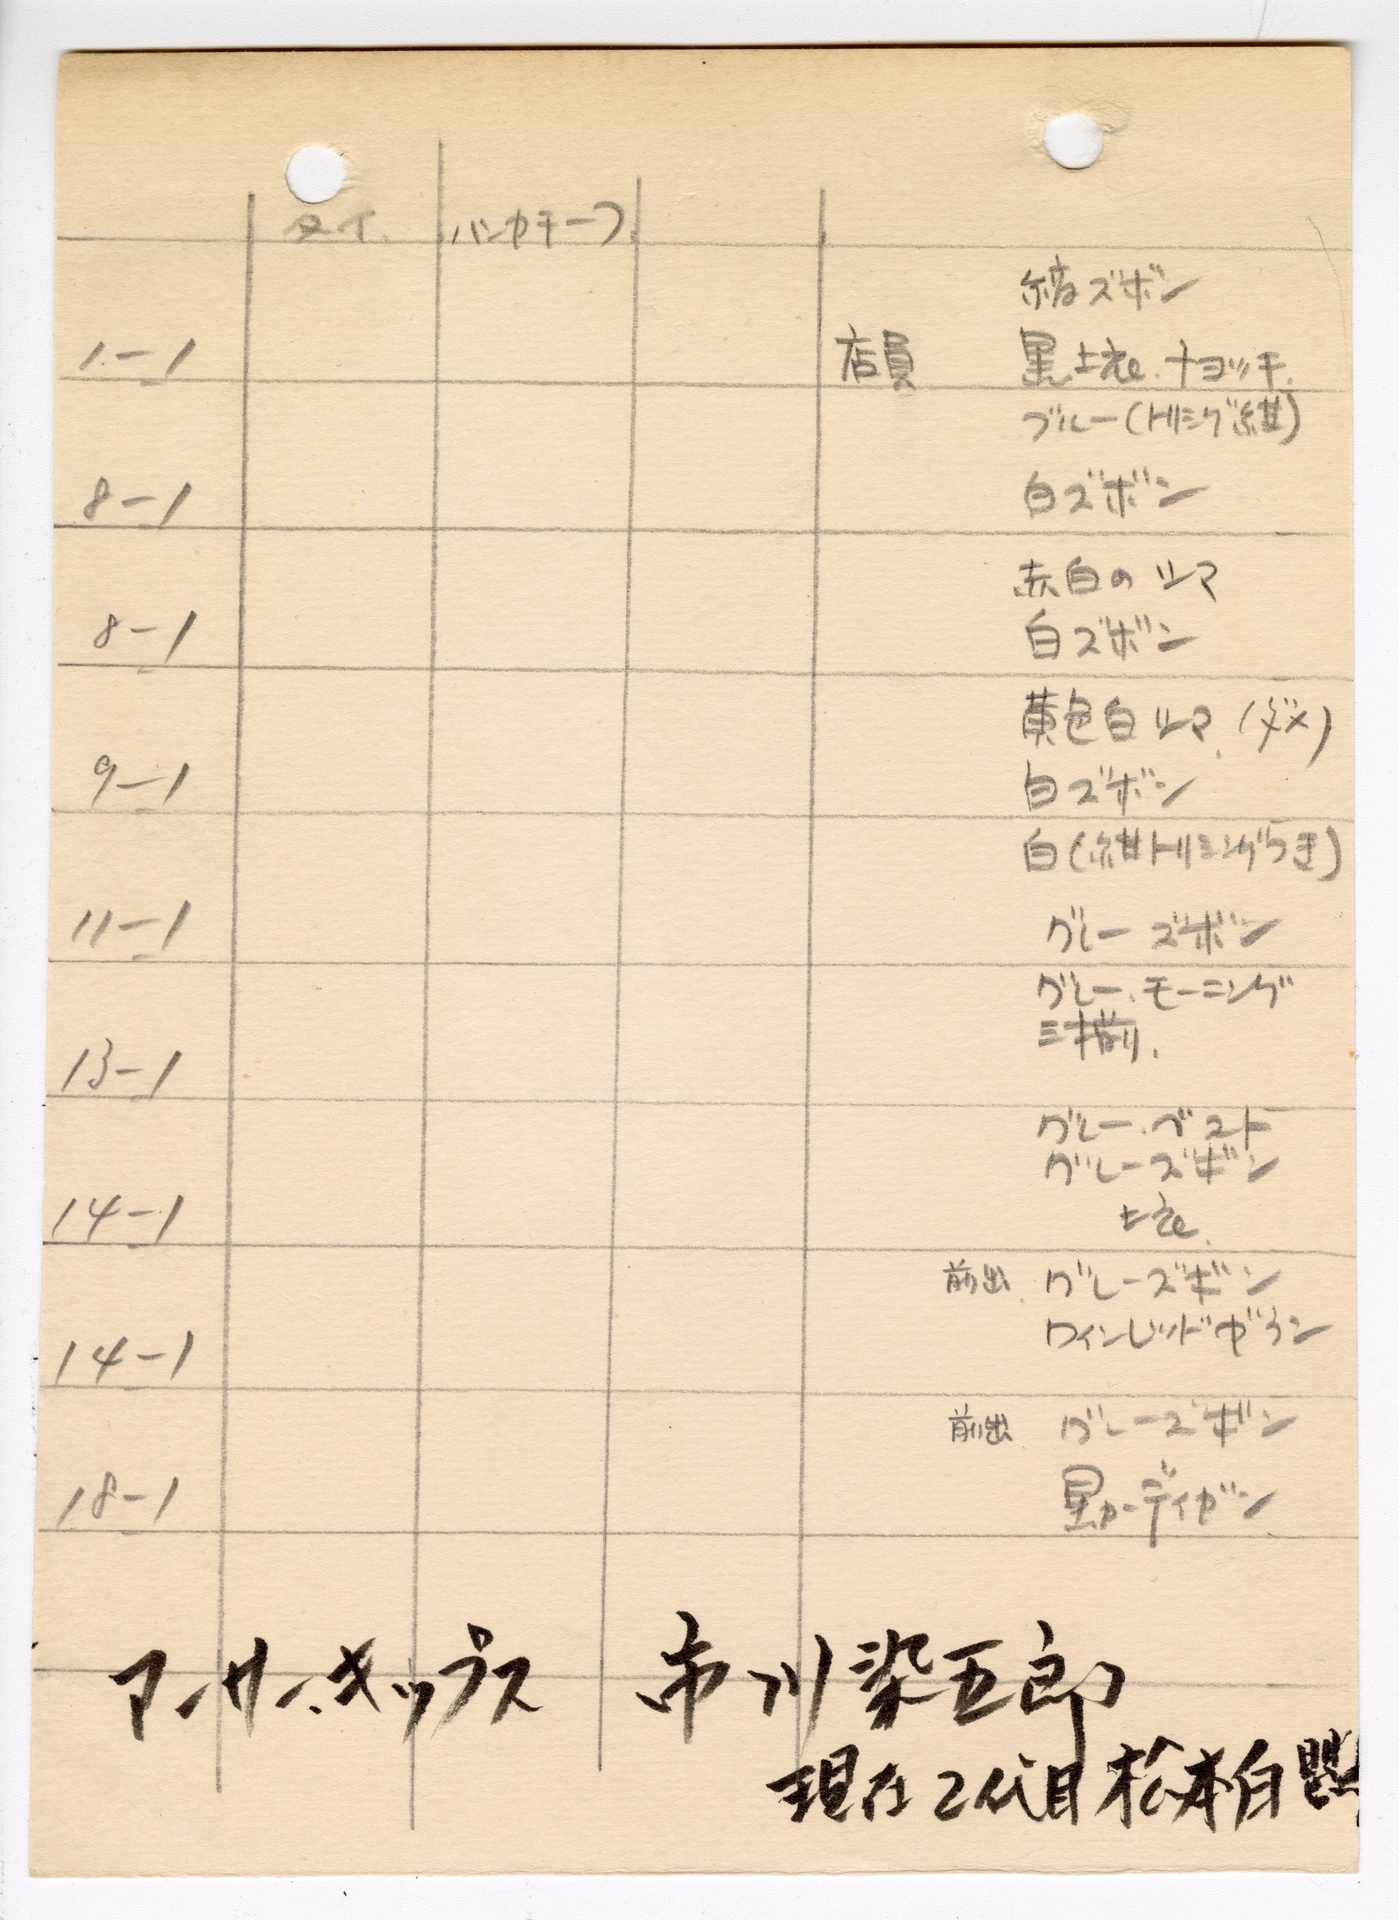 タイ ハンカチーフ
縞ズボン
1-1 店員 黒上衣.チョッキ.
ブルー(トリミング紺)
8-1 白ズボン
赤白のシマ
8-1 白ズボン
黄色白シマ.(ダメ)
9-1 白ズボン
白(紺トリミングつき)
11-1 グレーズボン
グレー.モーニング
13-1 三揃り.
グレー.ベスト
グレーズボン
14-1 上衣.
前出 グレーズボン
14-1 ワインレッドガウン
前出 グレーズボン
18-1 カーディガン
アーサー.キップス 市川染五郎
現在2代目松本白鸚